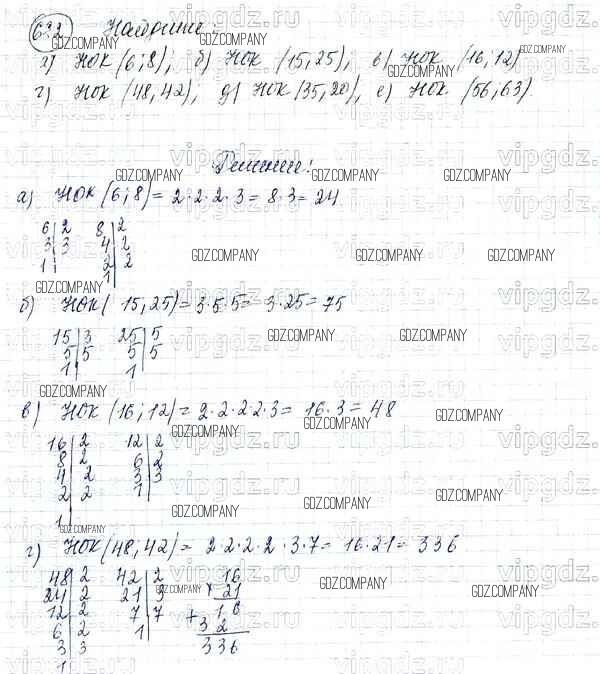 632 Найдите:
а) НОК (6;8); б) НОК (15,25); в) НОК (16,12)
г) НОК (48,42); д) НОК (35,20), е) НОК (56,63).
Решение:
а) НОК (6;8) = 2·2·2·3 = 8·3 = 24
6 | 2   8 | 2
3 | 3   4 | 2
1 |   2 | 2
1
б) НОК (15,25) = 3·5·5 = 3·25 = 75
15 | 3   25 | 5
5 | 5   5 | 5
1   1
в) НОК (16;12) = 2·2·2·2·3 = 16·3 = 48
16 | 2   12 | 2
8 | 2   6 | 2
4 | 2   3 | 3
2 | 2   1
1
г) НОК (48,42) = 2·2·2·2·3·7 = 16·21 = 336
48 | 2   42 | 2   16
24 | 2   21 | 3   × 21
12 | 2   7 | 7   + 16
6 | 2   1   32
3 | 3   336
1
GDZ.COMPANY
vipgdz.ru